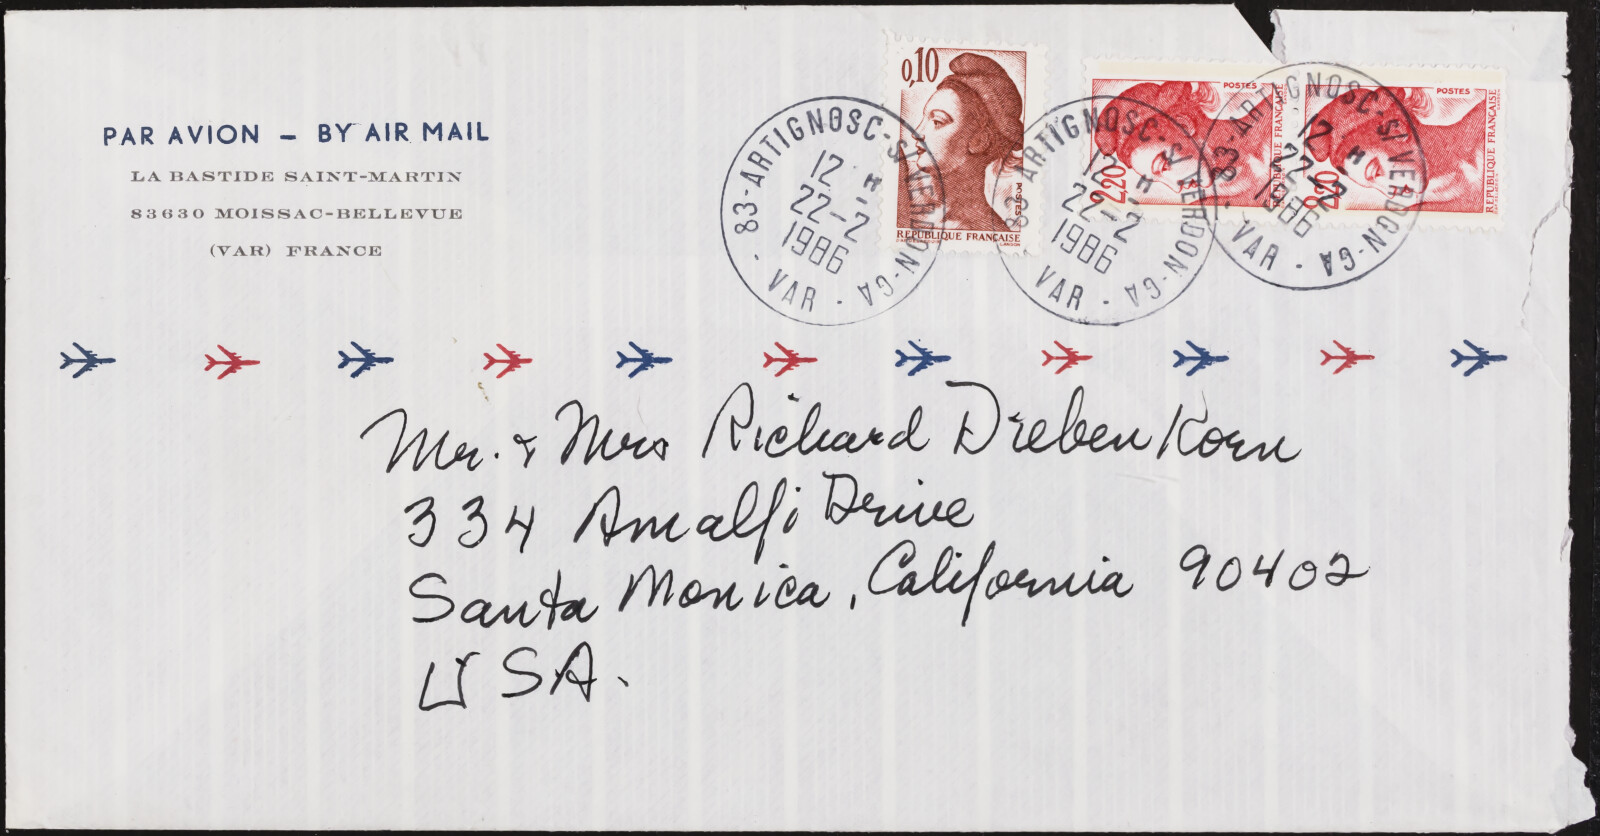 PAR AVION – BY AIR MAIL
LA BASTIDE SAINT-MARTIN
83630 MOISSAC-BELLEVUE
(VAR) FRANCE
0,10
POSTES
REPUBLIQUE FRANÇAISE
2,20
POSTES
REPUBLIQUE FRANÇAISE
2,20
POSTES
REPUBLIQUE FRANÇAISE
83-ARTIGNOSC-S/VERDON-GA
12 H
22-2
1986
- VAR -
83-ARTIGNOSC-S/VERDON-GA
12 H
22-2
1986
- VAR -
83-ARTIGNOSC-S/VERDON-GA
12 H
22-2
1986
- VAR -
Mr. & Mrs Richard DiebenKorn
334 Amalfi Drive
Santa Monica, California 90402
USA.